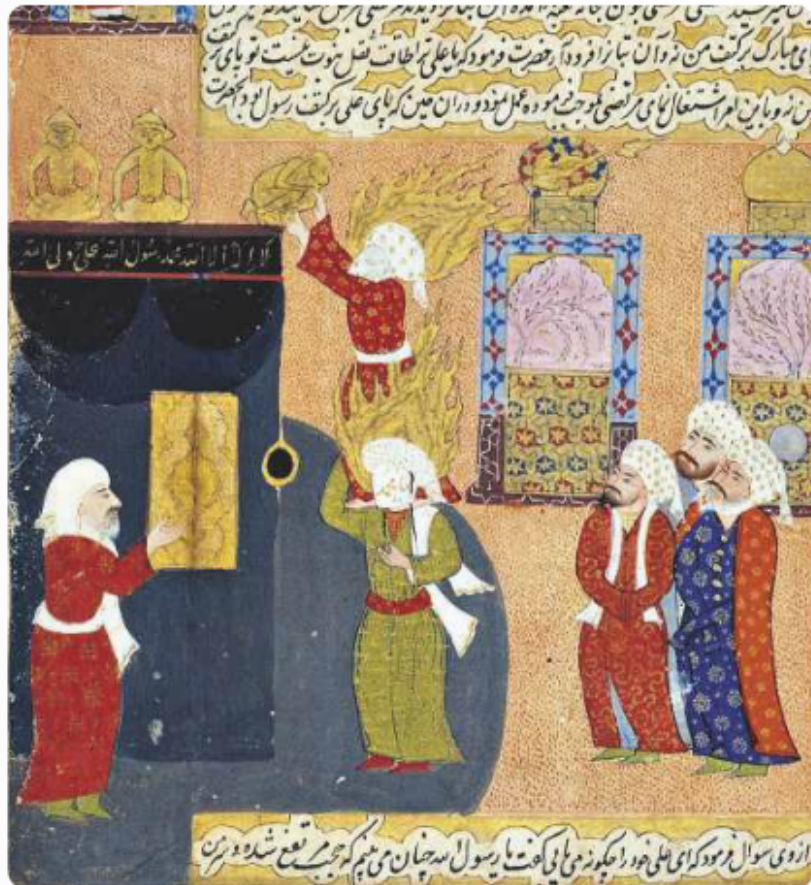 مبارک بر کتف من نه و آن بتانرا فرود آر حضرت فرمود که یا علی ترا طاقت ثقل نبوت نیست تو پای بر کتف
نه و باین امر اشتغال نمای مرتضی بموجب فرموده عمل نمود و دران حین که پای علی بر کتف رسول بود آنحضرت
لا اله الا الله محمد رسول الله علی ولی الله
ازوی سوال فرمود که ای علی خود را چگونه می یابی گفت یا رسول الله چنان می بینم که حجب مرتفع شده و سر من